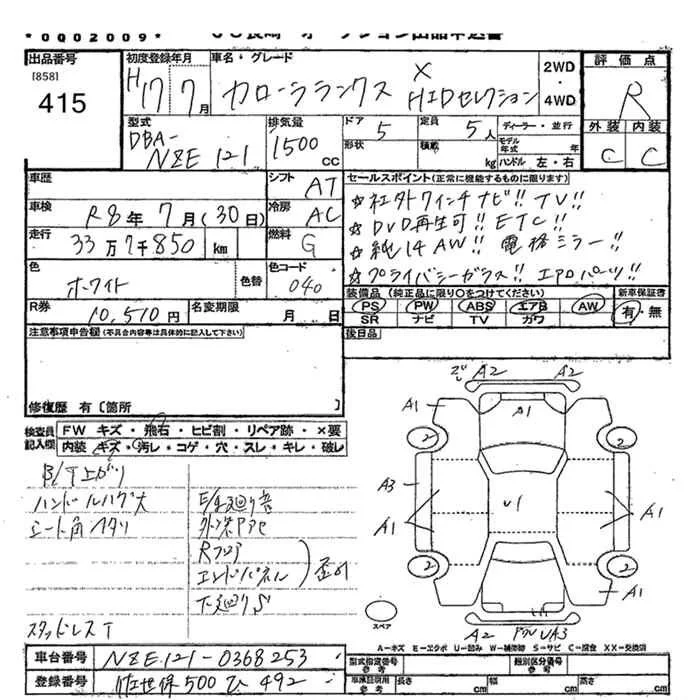 *0Q02009*
出品番号
[858]
415
初度登録年月
H17 7月
車名・グレード
カローラランクス X HIDセレクション
2WD・4WD
評価点
R
外装 内装
C C
型式
DBA-NZE121
排気量
1500 CC
ドア 5
形状
定員 5人
積載 kg
ディーラー・並行
モデル年式 年
ハンドル 左・右
車歴
シフト AT
車検
R8年7月(30日)
冷房 AC
走行
33万7千850km
燃料 G
色
ホワイト
色替
色コード 040
R券
10,510円
名変期限
月 日
セールスポイント(正常に機能するものに限ります)
☆社外7インチナビ!! TV!!
☆DVD再生可!! ETC!!
☆純14AW!! 電格ミラー!!
☆プライバシーガラス!! エアロパーツ!!
装備品(純正品に限り○をつけてください)
PS PW ABS エアB AW
SR ナビ TV カワ
新車保証書
有・無
後日品
注意事項申告欄(不具合内容等は具体的に記入して下さい)
修復歴 有〔箇所 〕
検査員記入欄
FW キズ・飛石・ヒビ割・リペア跡・×要
内装 キズ・汚レ・コゲ・穴・スレ・キレ・破レ
ハンドルハゲ大
シート角ヘタリ
外装
Rフロア
エンドパネル
下廻りS
スタッドレスT
A2 A2
A1 A1
2 2
A3
U1
A1 A1
2 2
A1
A2 UA3
スペア
A=キズ E=エクボ U=凹み W=補修跡 S=サビ C=腐食 XX=交換済
車台番号
NZE121-0368253
登録番号
佐世保500ひ492
型式指定番号
参考
類別区分番号
参考
車検証明用
参考
長さ cm
幅 cm
高さ cm